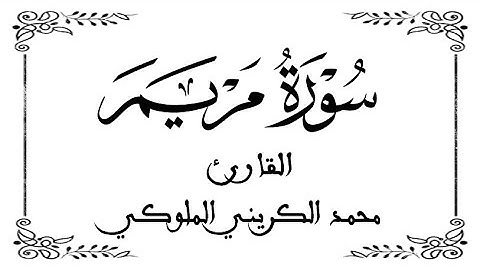 سُوْرَةُ مَرْيَمَ
القارئ
محمد الكريني الملوكي